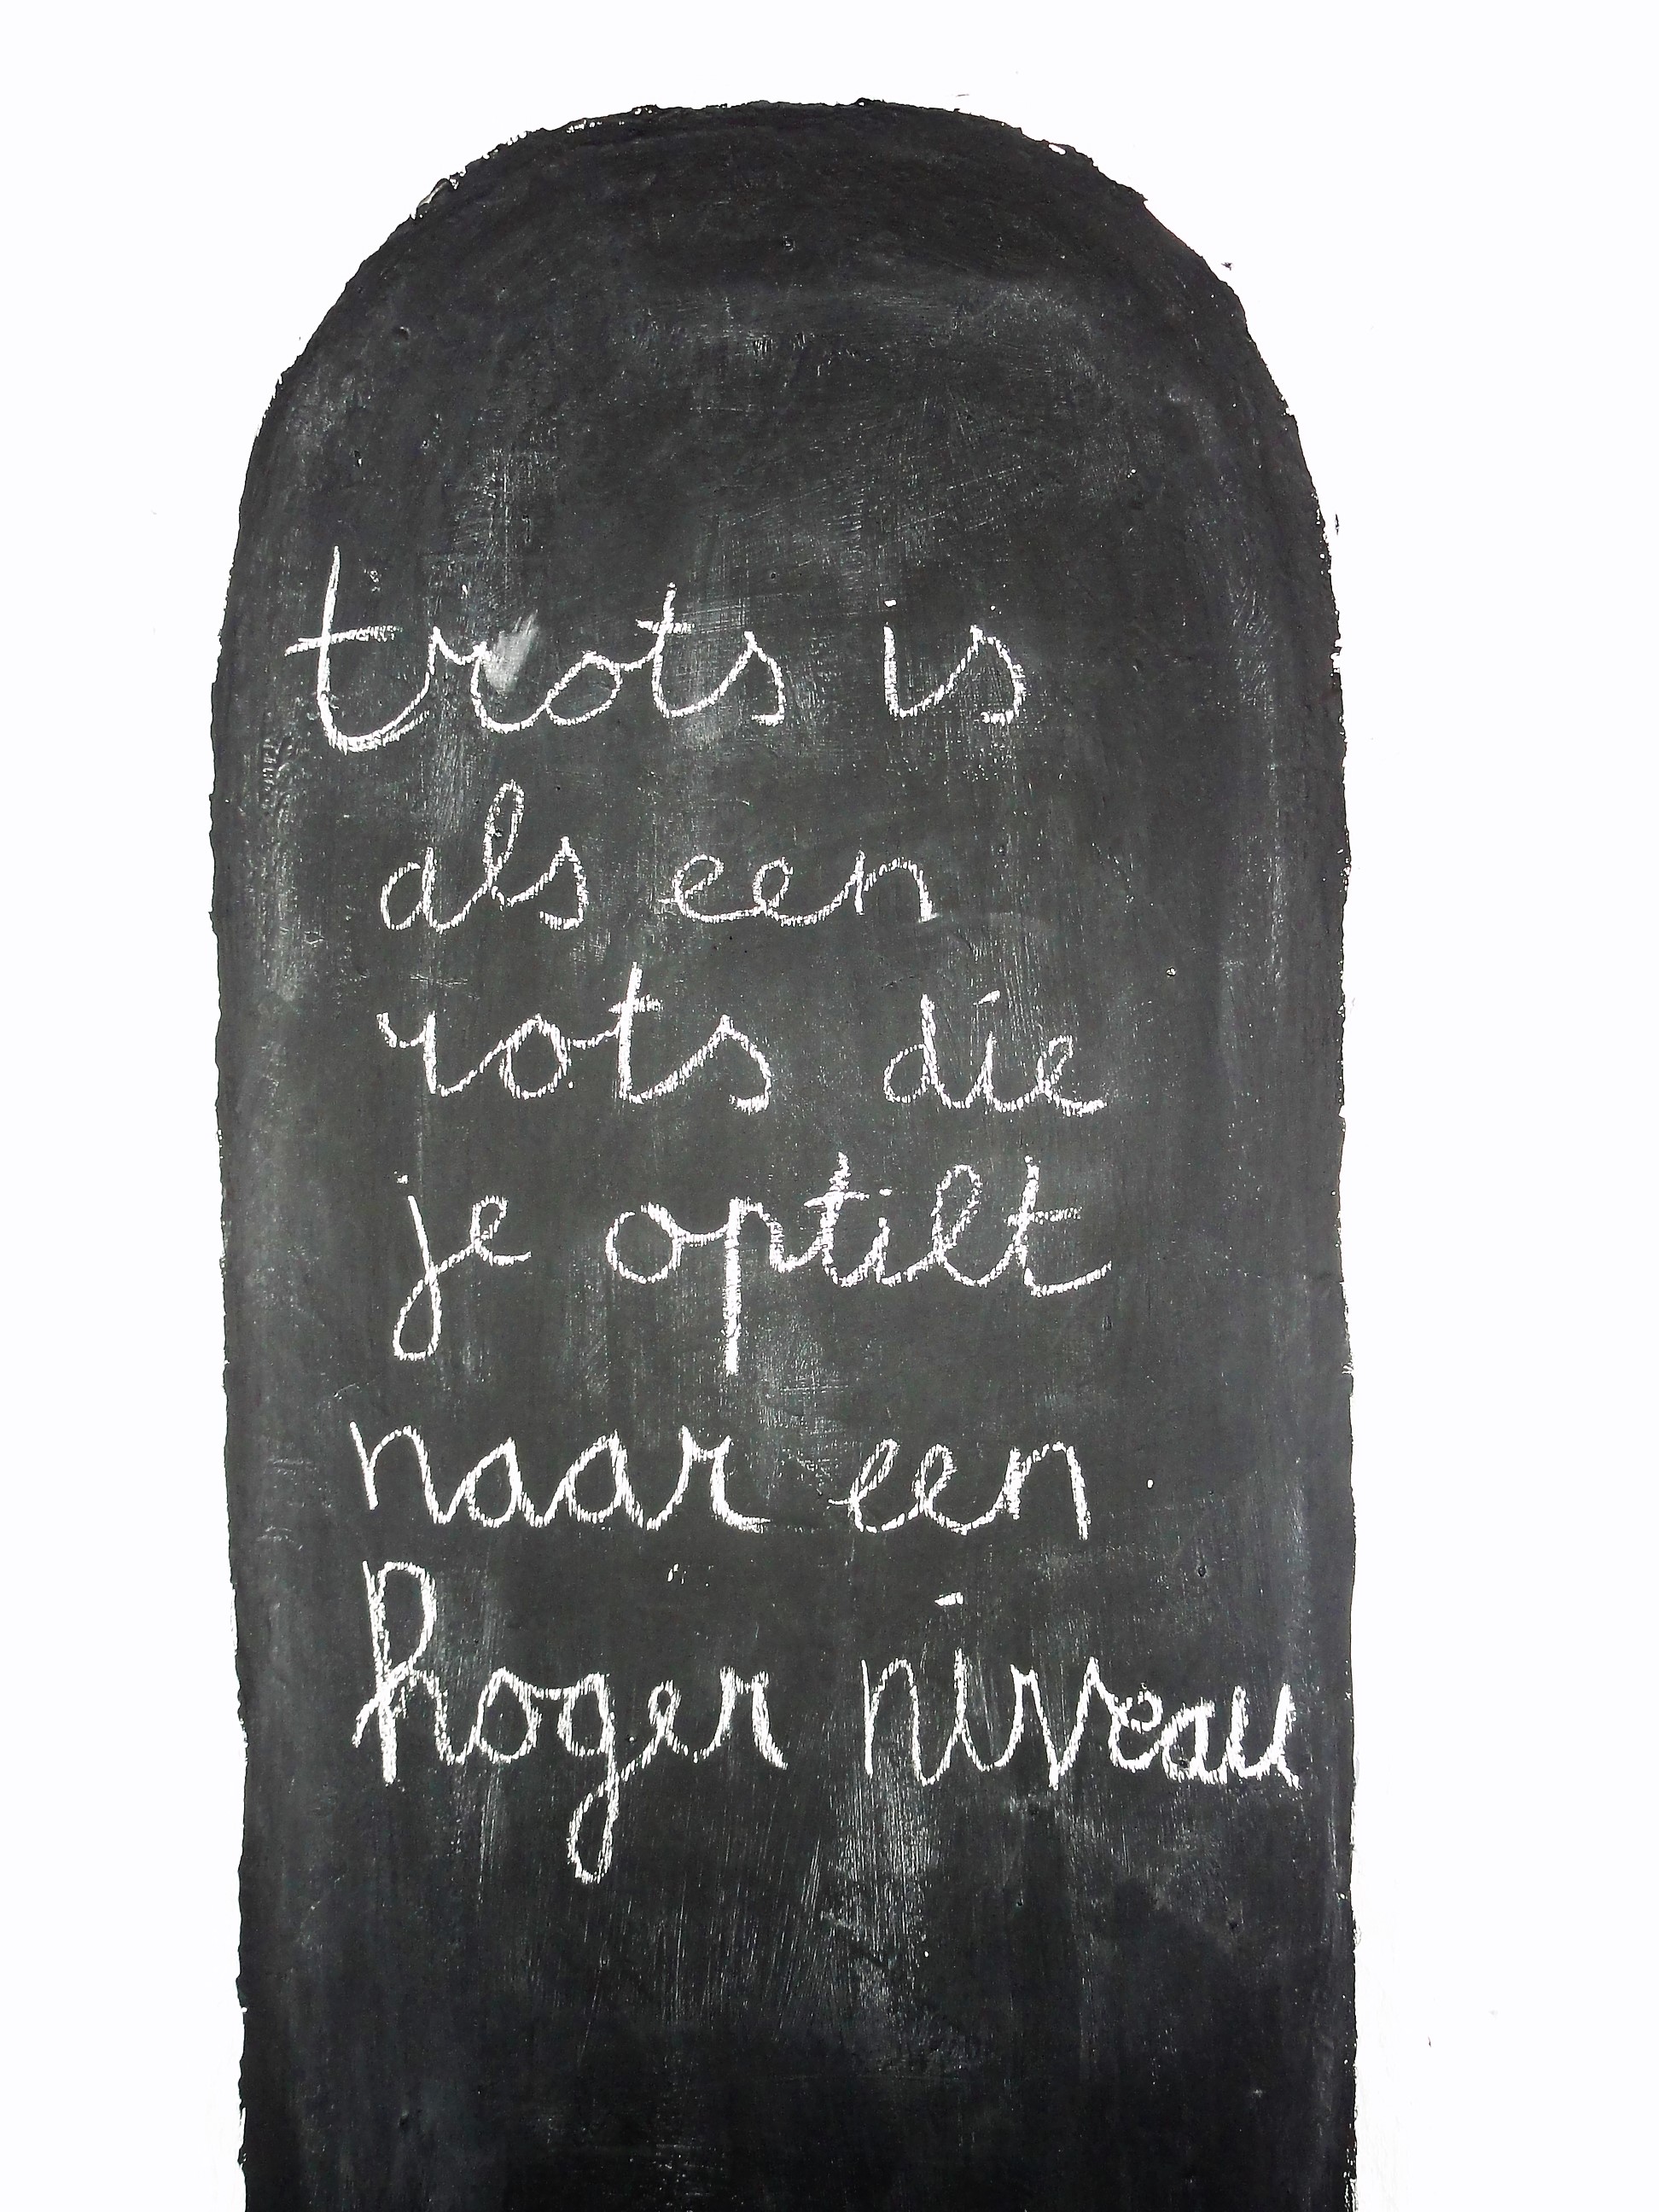 trots is
als een
rots die
je optilt
naar een
hoger niveau